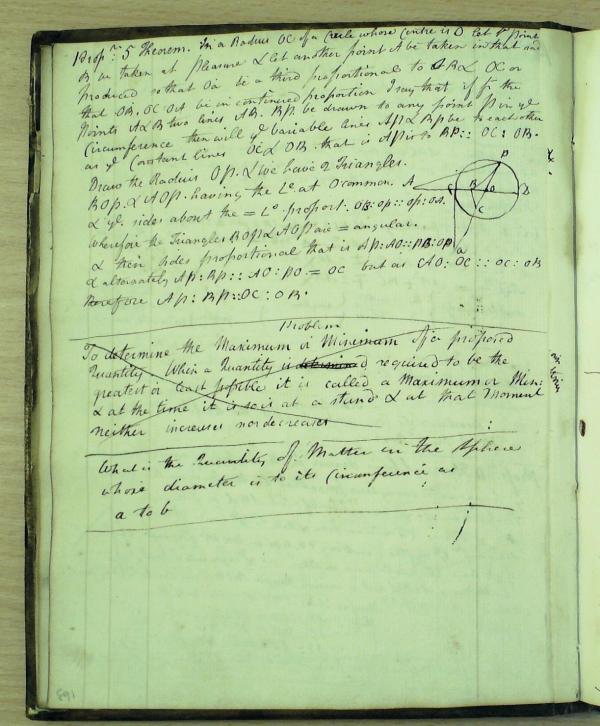 Prop.n 5 Theorem. In a Radius OC of a Circle whose Centre is O let ye Point
B be taken at Pleasure & let another point A be taken in that and
produced so that OA be a third proportional to OB & OC or
that OB. OC OA be in continued proportion I say that if fr. the
Points A & B two lines AP. BP. be drawn to any point P in ye
Circumference then will ye variable lines AP & BP be to each other
as ye Constant lines OC & OB. that is AP is to BP :: OC : OB.
Draw the Radius OP. & we have 2 Triangles.
BOP. & AOP. having the Le. at O common.
& ye. sides about the = Le proport: OB:OP::OP:OA.
Wherefore the Triangles BOP & AOP are = angular.
& their sides proportional that is AP:AO::PB:OP
& alternately AP:BP::AO:PO = OC but as AO:OC::OC:OB
therefore AP:BP::OC:OB.
A
P
B
O
D
C
Problem
To determine the Maximum or Minimum of a proposed
Quantity. When a Quantity is determined required to be the
greatest or least possible it is called a Maximum or Min:
& at the time it is so is at a stand & at that Moment
neither increases nor decreases
What is the Quantity of Matter in the Sphere
whose diameter is to its Circumference as
a to b
163